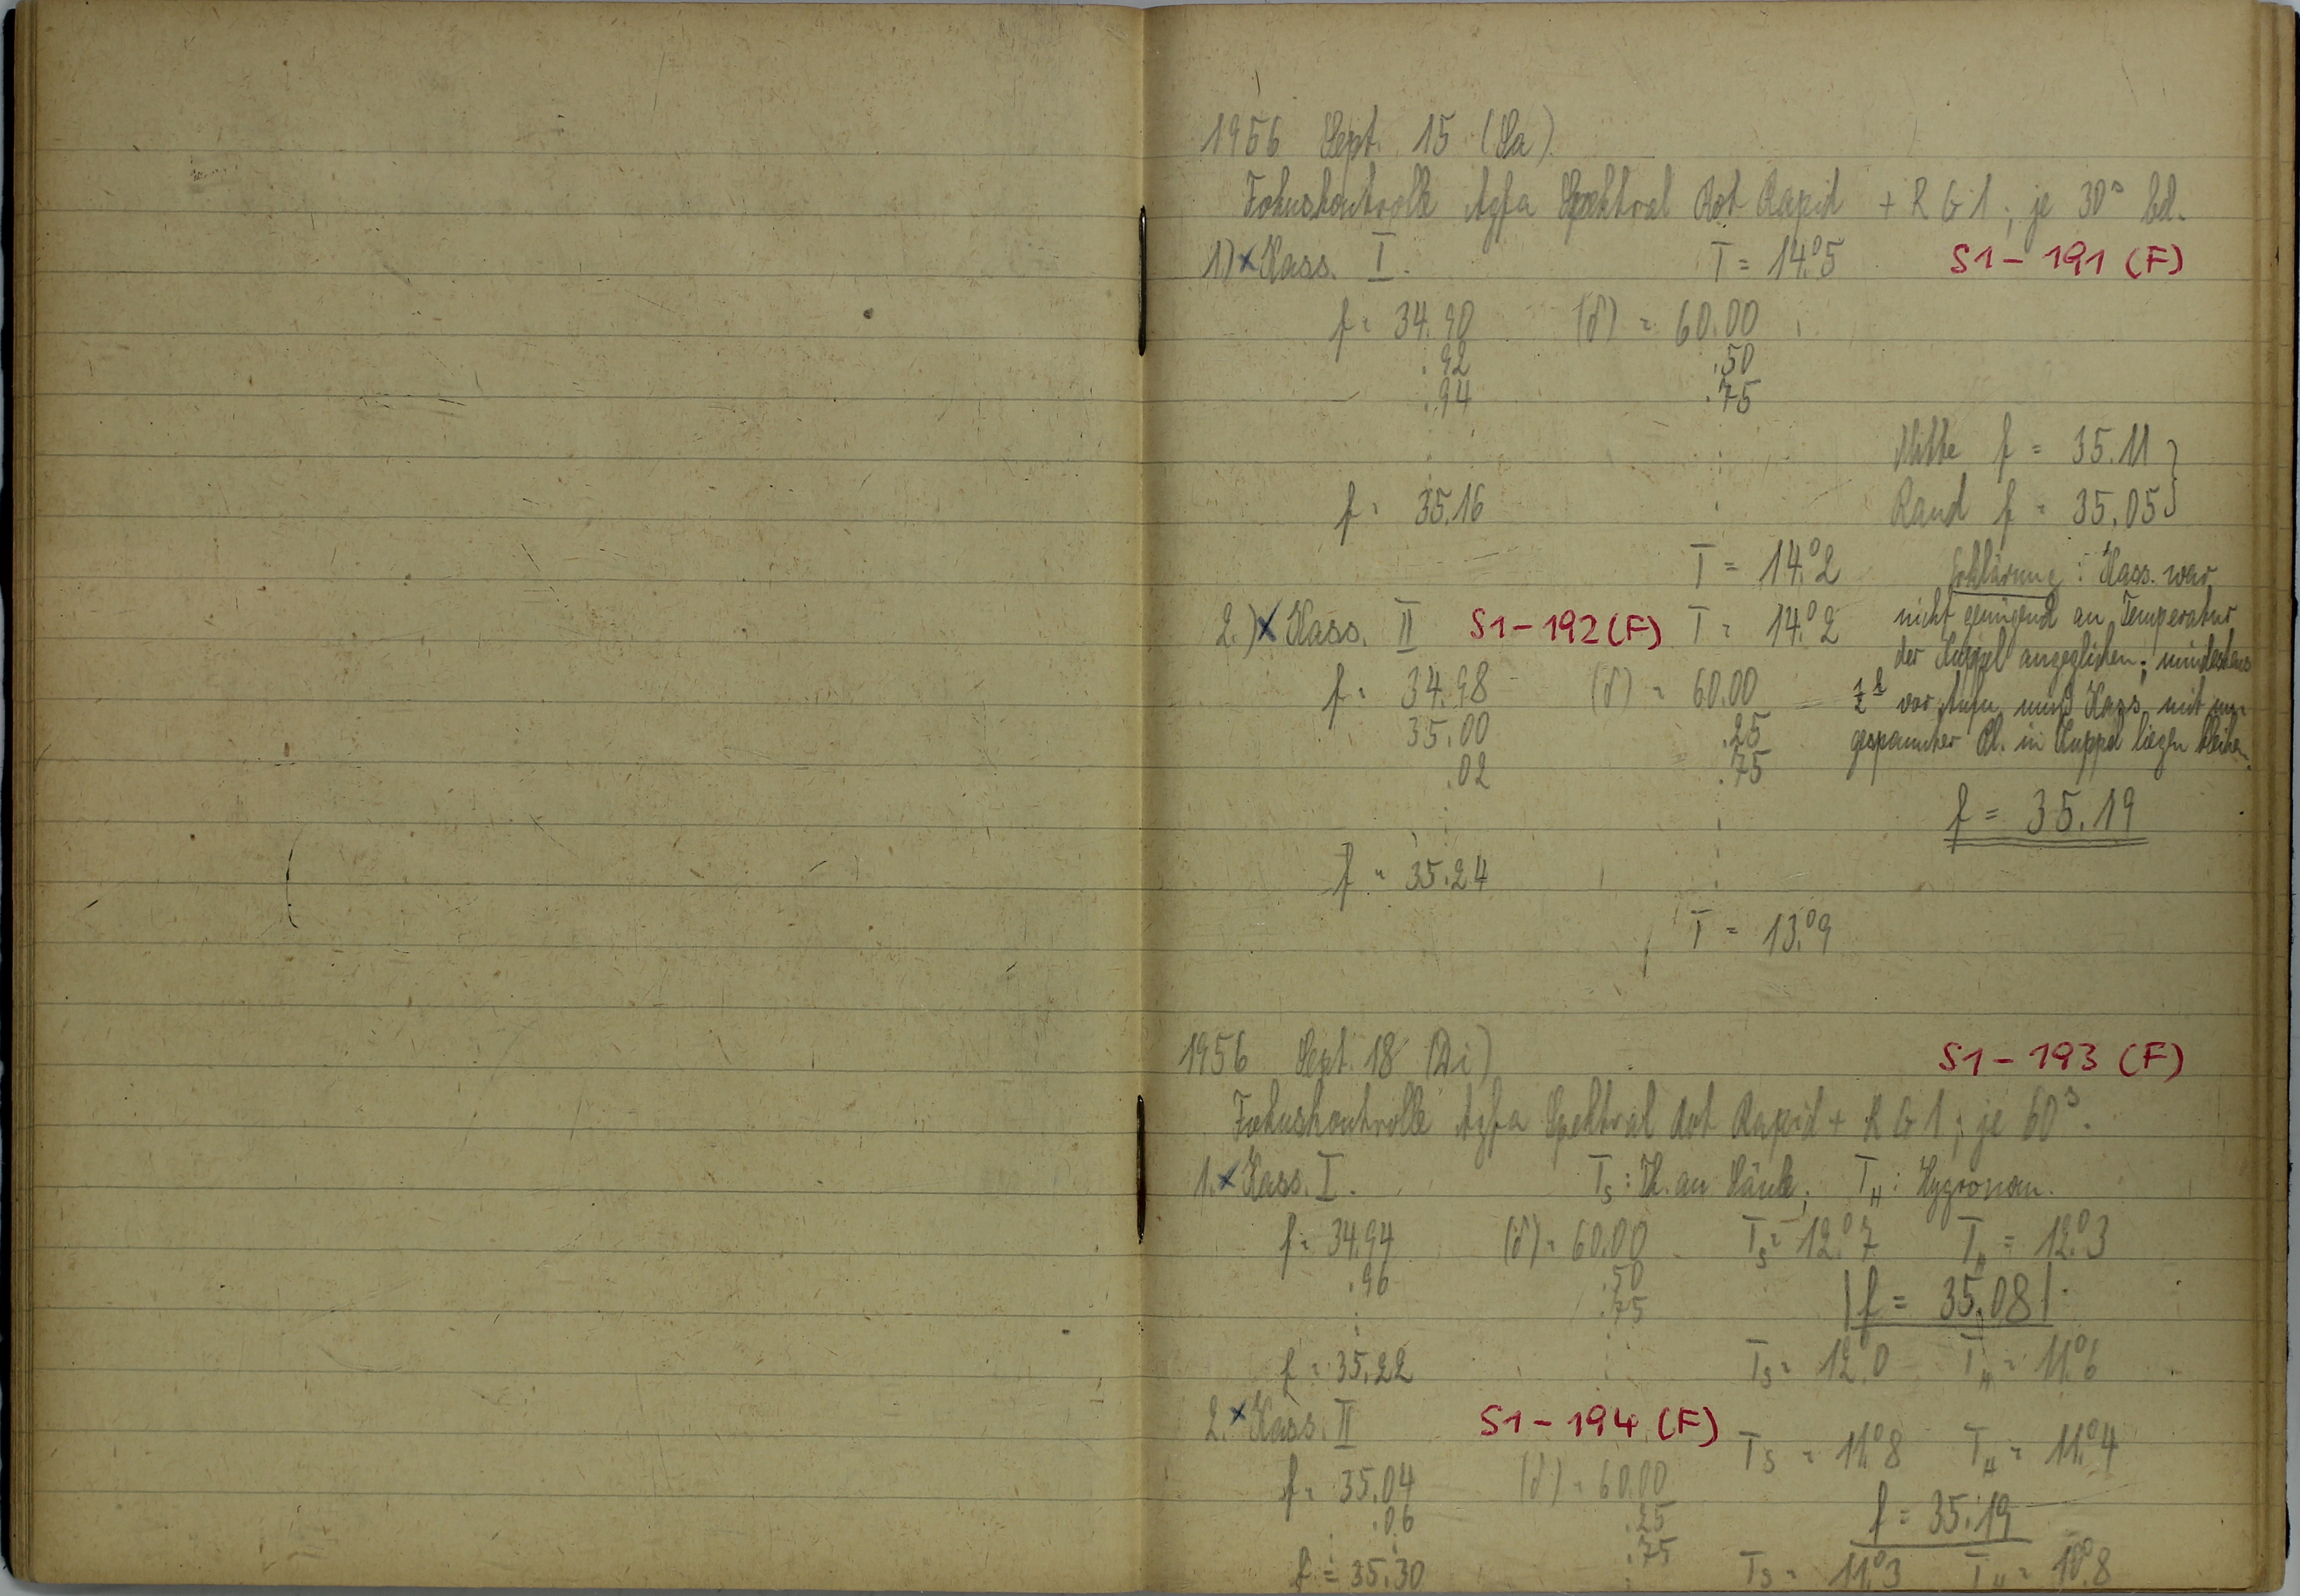 1956 Sept. 15 (Sa)
Fokuskontrolle Agfa Spektral Rot Rapid + RG1; je 30ˢ bel.
1.) x Kass. I. T = 14.°5 S1 - 191 (F)
f = 34.90 (δ) = 60.00
.92 .50
.94 .75
Mitte f = 35.11 }
f = 35.16 Rand f = 35.05 }
T = 14.°2 Erklärung: Kass. war
2.) x Kass. II S1 - 192 (F) T = 14.°2 nicht genügend an Temperatur
der Kuppel angeglichen; mindestens
f = 34.98 (δ) = 60.00 ½ʰ vor Aufn. muß Kass. mit ein-
35.00 .25 gespannter Pl. in Kuppel liegen bleiben.
.02 .75
f = 35.19
f = 35.24
T = 13.°9
1956 Sept. 18 (Di) S1 - 193 (F)
Fokuskontrolle Agfa Spektral Rot Rapid + RG1; je 60ˢ.
1. x Kass. I. T_S: Th. an Säule; T_H: Hygrom.
f = 34.94 (δ) = 60.00 T_S = 12.°7 T_H = 12.°3
.96 .50
.75 |f = 35.08|
f = 35.22 T_S = 12.°0 T_H = 11.°6
2. x Kass. II S1 - 194 (F)
T_S = 11.°8 T_H = 11.°4
f = 35.04 (δ) = 60.00
.06 .25 f = 35.19
.75
f = 35.30 T_S = 11.°3 T_H = 10.°8